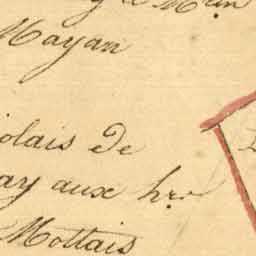 y le Mlin
Mayan
olais De
ay aux hrs
Mottais